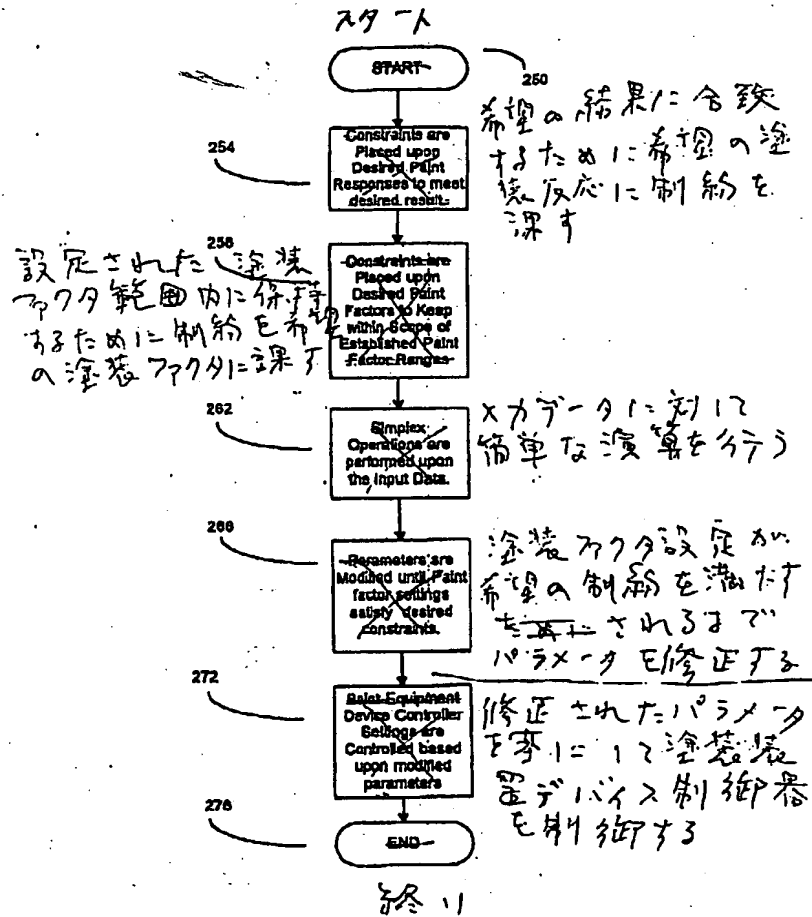 スタート
START
250
希望の結果に合致
するために希望の塗
装反応に制約を
課す
254
Constraints are
Placed upon
Desired Paint
Responses to meet
desired result.
258
設定された塗装
ファクタ範囲内に保持
するために制約を希望
の塗装ファクタに課す
Constraints are
Placed upon
Desired Paint
Factors to Keep
within Scope of
Established Paint
Factor Ranges
262
Simplex
Operations are
performed upon
the Input Data.
入力データに対して
簡単な演算を行う
266
Parameters are
Modified until Paint
factor settings
satisfy desired
constraints.
塗装ファクタ設定が
希望の制約を満たす
されるまで
パラメータを修正する
272
Paint Equipment
Device Controller
Settings are
Controlled based
upon modified
parameters
修正されたパラメータ
を基にして塗装装
置デバイス制御器
を制御する
276
END
終り